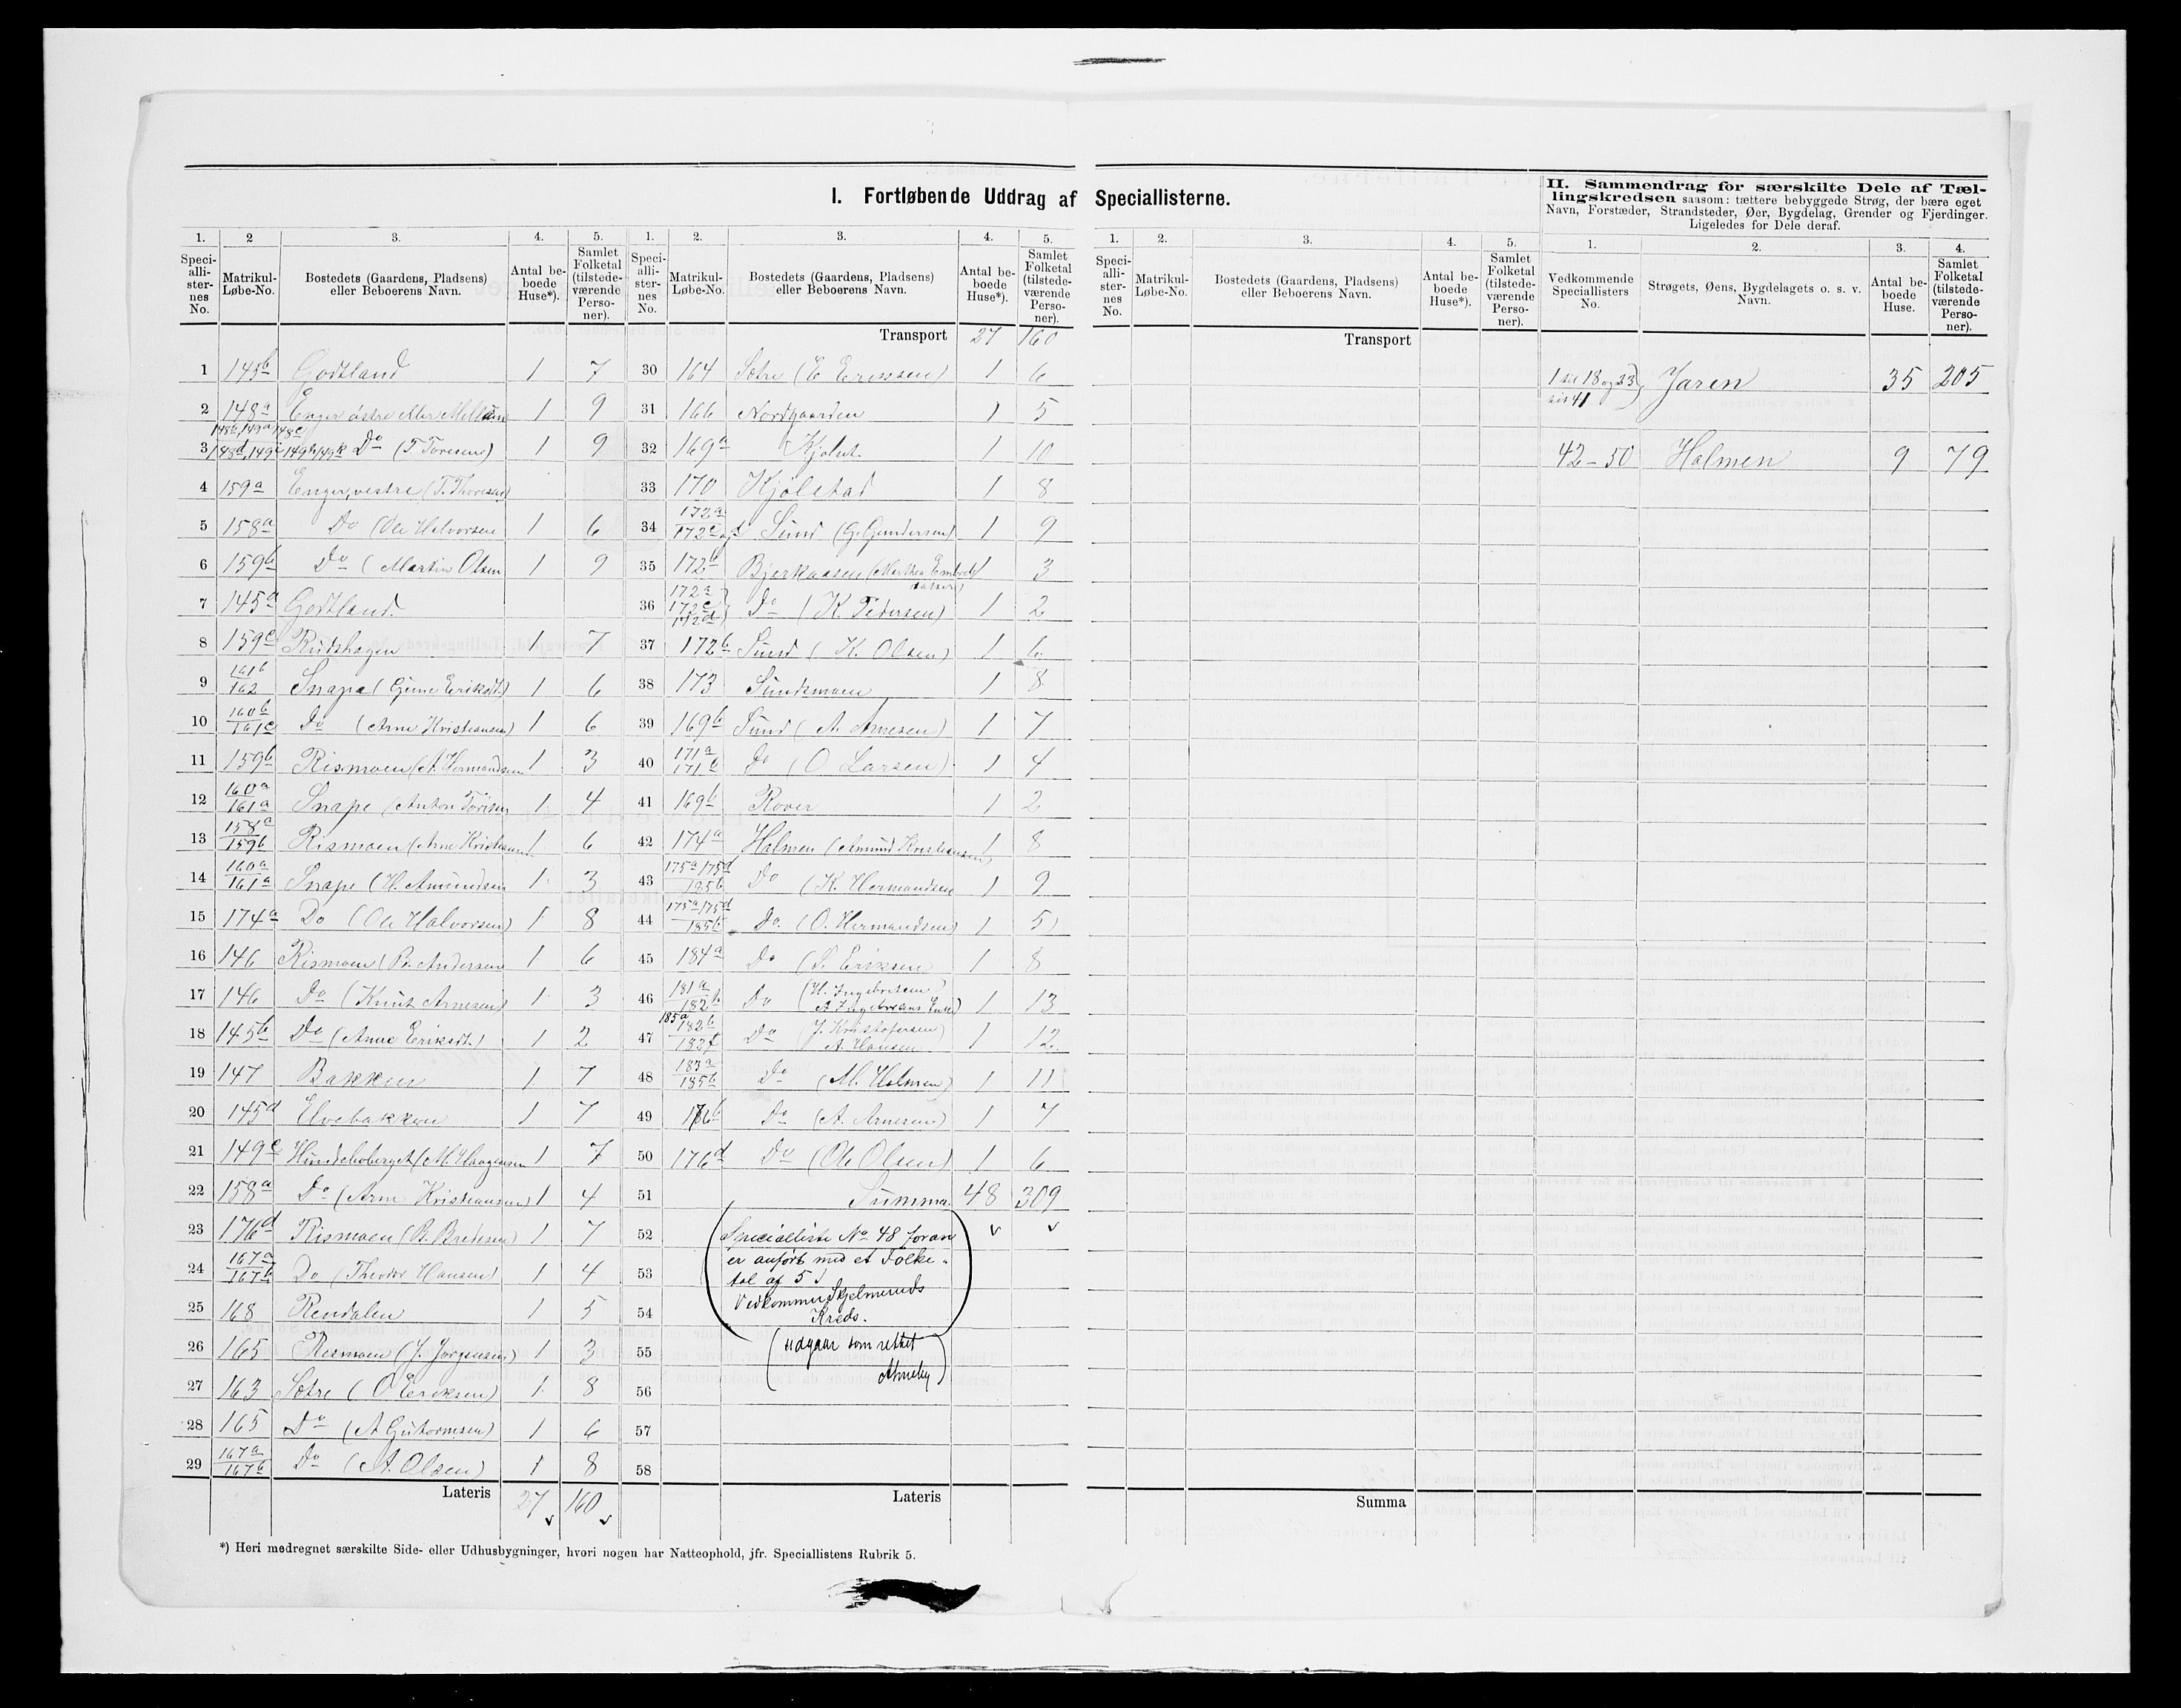 I. Fortløbende Uddrag af Speciallisterne.
II. Sammendrag for særskilte Dele af Tæl-
lingskredsen saasom: tættere bebyggede Strøg, der bære eget
Navn, Forstæder, Strandsteder, Øer, Bygdelag, Grender og Fjerdinger.
Ligeledes for Dele deraf.
1. 2 3. 4. 5. 1. 2. 3. 4. 5. 1. 2. 3. 4. 5. 1. 2. 3. 4.
Speci-alli-ster-nes No. Matrikul-Løbe-No. Bostedets (Gaardens, Pladsens) eller Beboerens Navn. Antal be-boede Huse*). Samlet Folketal (tilstede-værende Perso-ner).
Speci-alli-ster-nes No. Matrikul-Løbe-No. Bostedets (Gaardens, Pladsens) eller Beboerens Navn. Antal be-boede Huse*). Samlet Folketal (tilstede-værende Perso-ner).
Speci-alli-ster-nes No. Matrikul-Løbe-No. Bostedets (Gaardens, Pladsens) eller Beboerens Navn. Antal be-boede Huse*). Samlet Folketal (tilstede-værende Perso-ner).
Vedkommende Speciallisters No. Strøgets, Øens, Bygdelagets o. s. v. Navn. Antal be-boede Huse. Samlet Folketal (tilstede-værende Perso-ner).
1 145b Godtland 1 7
2 148a Enger østre eller 1 9
3 Do (T. Toresen) 1 9
4 159a Enger, vestre (T. Thoresen)
5 158a Do (Ole Halvorsen 1 6
6 159b Do (Martin Olsen 1 9
7 145a Godtland.
8 159c Rudshagen 1 7
9 161b 162 Snapa ( Eriksdt.) 1 6
10 160b 161c Do (Arne Kristiansen) 1 6
11 159b Rismoen (A. Hermandsen 1 3
12 160a 161a Snape (Anton Torisen 1 4
13 158a 159b Rismoen (Arne Kristiansen 1 6
14 160a 161a Snape (H. Amundsen 1 3
15 174a Do (Ole Halvorsen) 1 8
16 146 Rismoen (B. Andersen 1 6
17 146 Do (Knut Arnesen) 1 3
18 145b Do (Anne Eriksdt.) 1 2
19 147 Bakken 1 7
20 145d Elvebakken 1 7
21 149c (M. Haagensen 1 7
22 158a Do (Arne Kristiansen) 1 4
23 176d Rismoen (B. Bredesen) 1 7
24 167a 167b Do (Theodor Hansen) 1 4
25 168 Rendalen 1 5
26 165 Rismoen (J. Jørgensen) 1 3
27 163 Sætre (O Eriksen) 1 8
28 165 Do (A Guttormsen) 1 6
29 167a 167b Do (A. Olsen) 1 8
Lateris 27 160
Transport 27 160
30 164 Sætre (E Erikssen) 1 6
31 166 Nordgaarden 1 5
32 169a Kjølst. 1 10
33 170 Kjølstad 1 8
34 172a 172c Sund (G. Gundersen) 1 9
35 172b Bjerkaasen (Marthea 1 3
36 172a 172c 172d Do (K. Pedersen) 1 2
37 172b Sund (K. Olsen) 1 6
38 173 Sundsmoen 1 8
39 169b Sund (A. Arnesen) 1 7
40 171a 171b Do (O. Larsen) 1 4
41 169b Rover 1 2
42 174a Holmen (Amund Kristiansen) 1 8
43 175a 175d Do (K. Hermandsen 1 9
44 175a 175d 185b Do. (O. Hermandsen) 1 5
45 184a Do (S. Eriksen 1 8
46 181a 182b Do (H. Ingebretsen A. Ingebretsens Enke) 1 13
47 185a 182b Do (J. Kristofersen A. Hansen 1 12
48 183a 185b Do (M. Holmen) 1 11
49 176b Do (A. Arnesen) 1 7
50 176d Do (Ole Olsen) 1 6
51 Summa. 48 309
52 (Specialliste No 48 foran
er anført med et Folke-
53 tal af 5
Vedkommer Skjelmeruds
54 Kreds.)
55 (udgaar som rettet
56
57
58
Lateris
Transport
Summa
1 til 18 og 23 til 41 Jaren 35 205
42 – 50 Holmen 9 79
*) Heri medregnet særskilte Side- eller Udhusbygninger, hvori nogen har Natteophold, jfr. Speciallistens Rubrik 5.